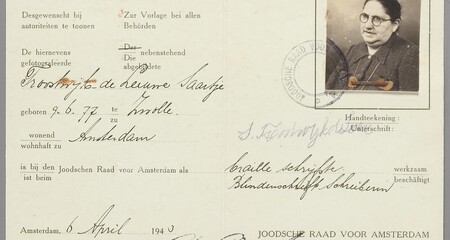 Desgewenscht bij
autoriteiten te toonen
Zur Vorlage bei allen
Behörden
De hiernevens
gefotografeerde
Der nebenstehend
Die
abgebildete
Troostwijk de Leeuwe Saartje
geboren 9.6.77 te Zwolle
zu
wonend
wohnhaft zu
Amsterdam
is bij den
ist beim
Joodschen Raad voor Amsterdam als
braille schrijfster
Blindenschrift Schreiberin
werkzaam
beschäftigt
Handteekening:
Unterschrift:
JOODSCHE RAAD VOOR
Amsterdam, 6 April 194
JOODSCHE RAAD VOOR AMSTERDAM